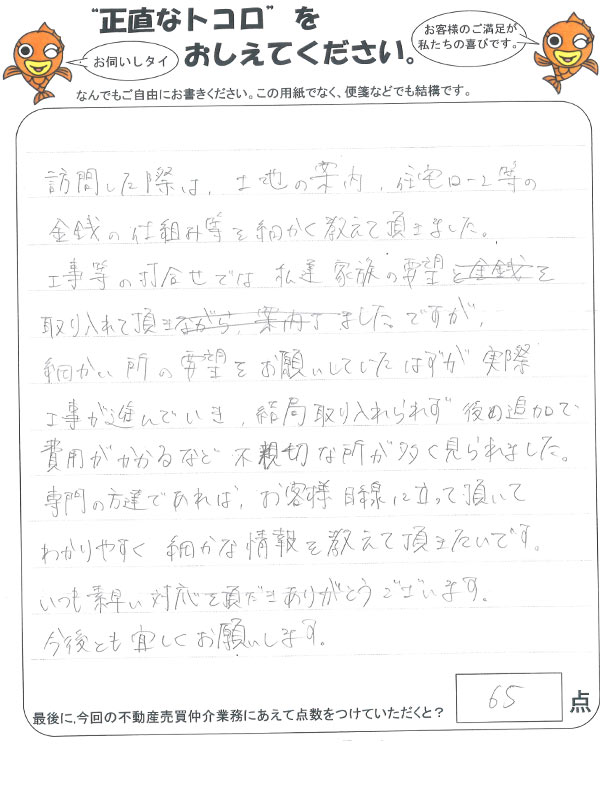 "正直なトコロ"を
おしえてください。
お伺いしタイ
お客様のご満足が
私たちの喜びです。
なんでもご自由にお書きください。この用紙でなく、便箋などでも結構です。
訪問した際は、土地の案内、住宅ローン等の
金銭の仕組み等を細かく教えて頂きました。
工事等の打合せでは 私達 家族の要望と金銭を
取り入れて頂きながら、案内してました。ですが、
細かい所の要望をお願いしていたはずが 実際
工事が進んでいき、結局取り入れられず 後め追加で
費用がかかるなど 不親切な所が多く見られました。
専門の方達であれば、お客様目線に立って頂いて
わかりやすく 細かな情報を教えて頂きたいです。
いつも素早い対応を頂だきありがとうございます。
今後とも宜しくお願いします。
最後に、今回の不動産売買仲介業務にあえて点数をつけていただくと？
65
点